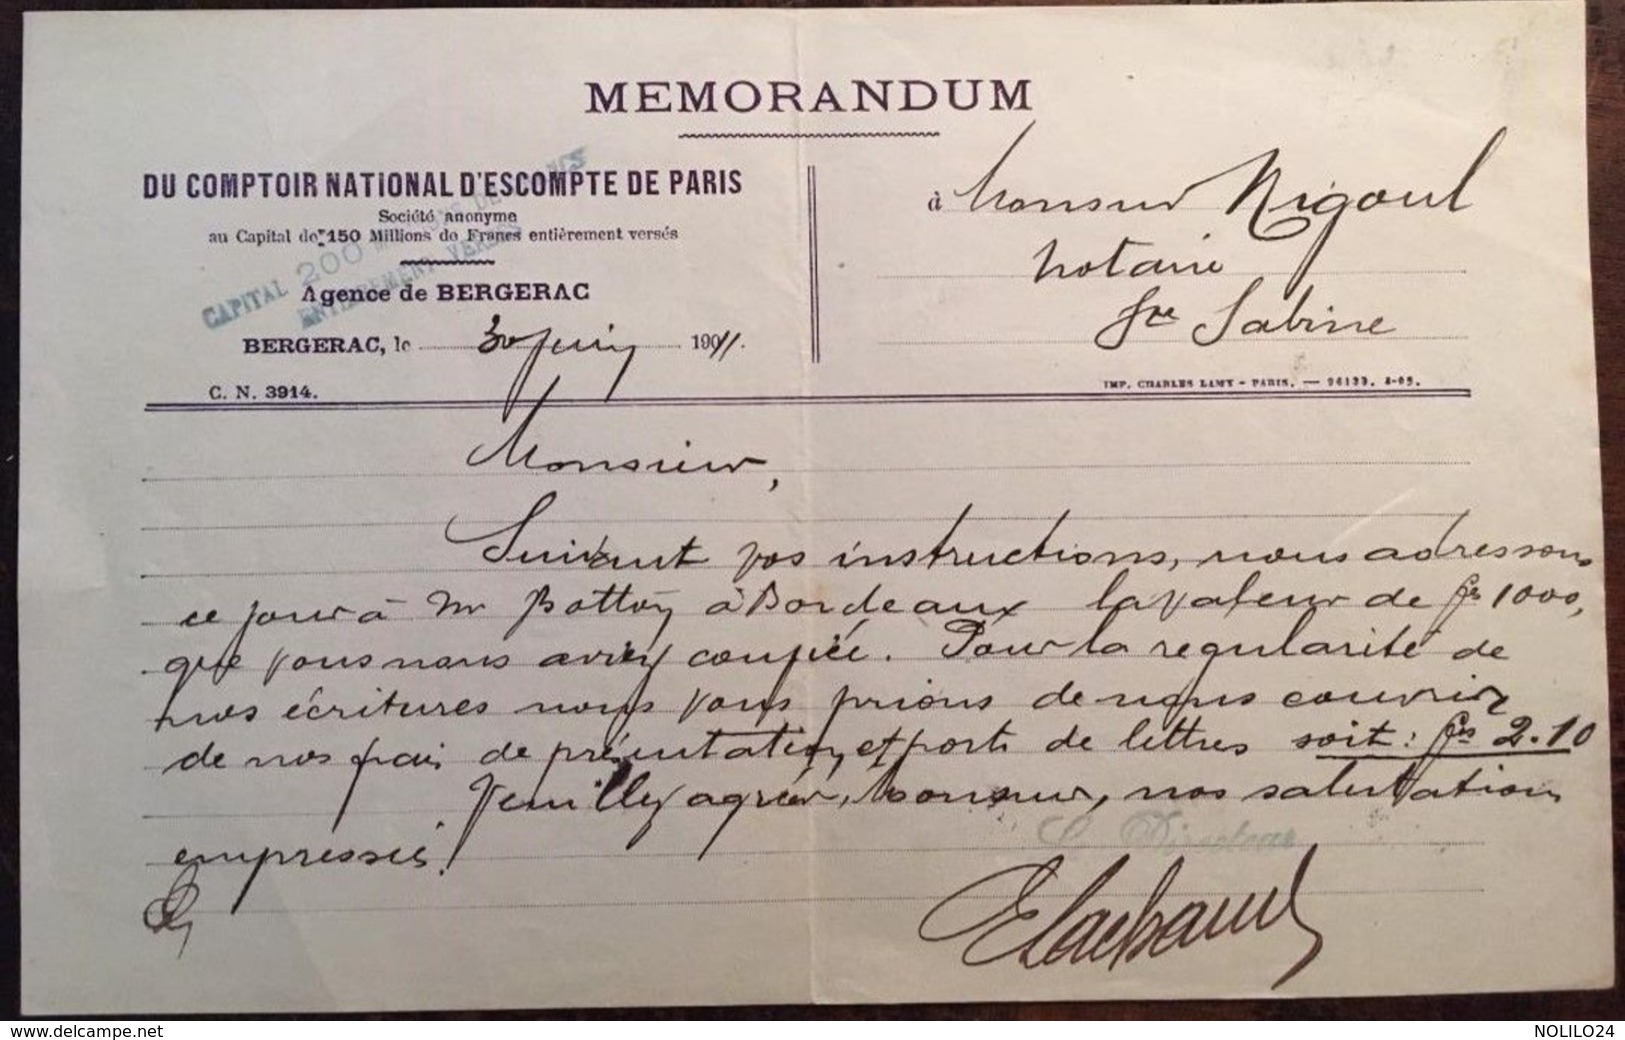 MEMORANDUM
DU COMPTOIR NATIONAL D'ESCOMPTE DE PARIS
Société anonyme
au Capital de 150 Millions de Francs entièrement versés
CAPITAL 200 MILLIONS DE FRANCS
ENTIÈREMENT VERSÉS
Agence de BERGERAC
BERGERAC, le 30 Juin 1911.
C. N. 3914.
à Monsieur Nigoul
notaire
Ste Sabine
IMP. CHARLES LAMY - PARIS. — 94133. 8-05.
Monsieur,
Suivant vos instructions, nous adressons
ce jour à Mr à Bordeaux la valeur de frs 1000,
que vous nous aviez confiée. Pour la regularité de
nos écritures nous vous prions de nous couvrir
de nos frais de présentation et ports de lettres soit : frs 2.10
Veuillez agréer, Monsieur, nos salutations
empressées.
Le Directeur
www.delcampe.net
NOLILO24